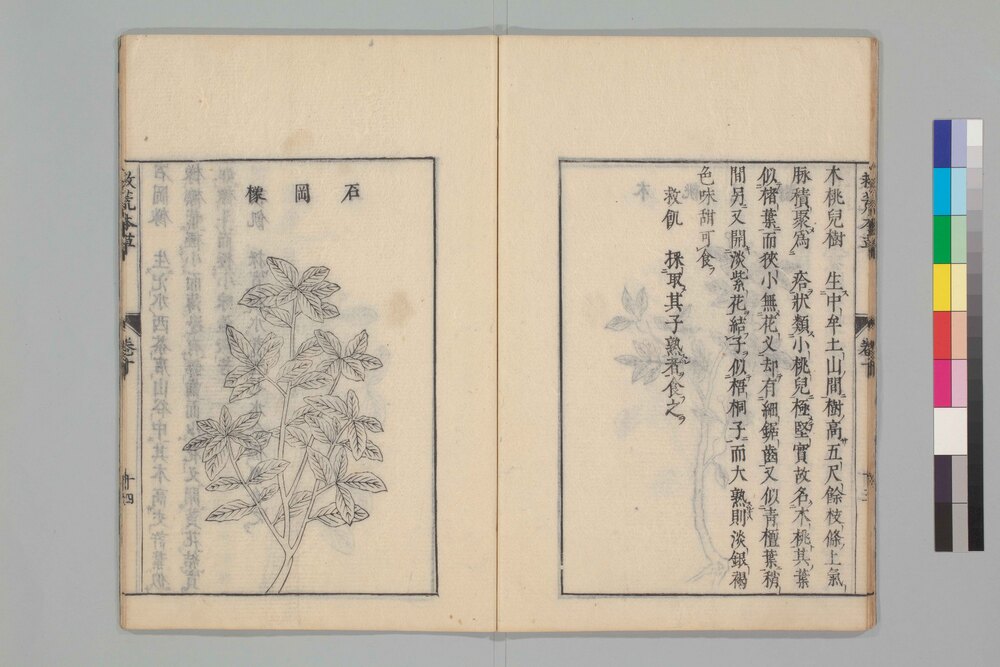 木桃兒樹　生中牟土山間樹高五尺餘枝條上氣
脉積聚爲　疙狀類小桃兒極堅實故名木桃其葉
似楮葉而狹小無花叉却有細鋸齒又似青檀葉稍
間另又開淡紫花結子似梧桐子而大熟則淡銀褐
色味甜可食
救飢　採取其子熟者食之
石岡橡
救荒本草
卷十
十四